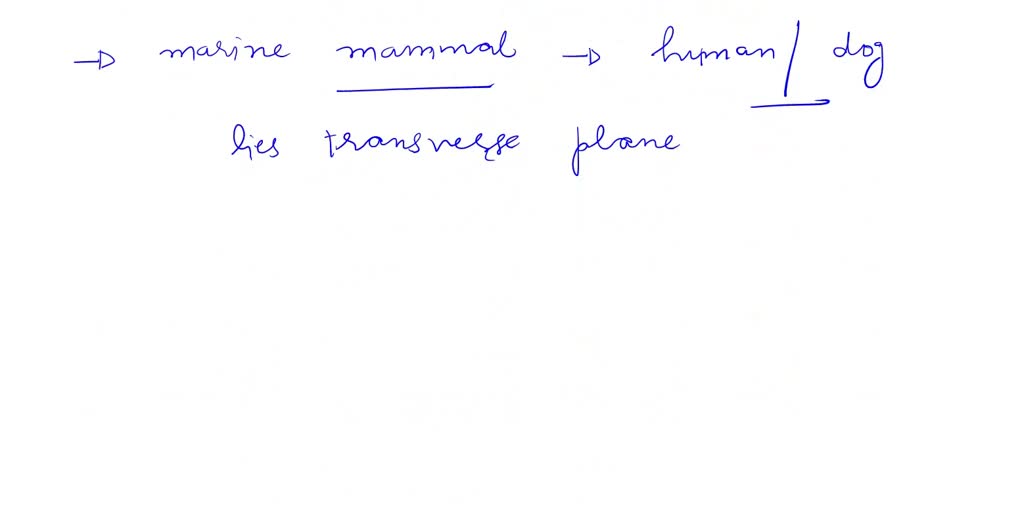 → marine mammal → human / dog
lies transverse plane